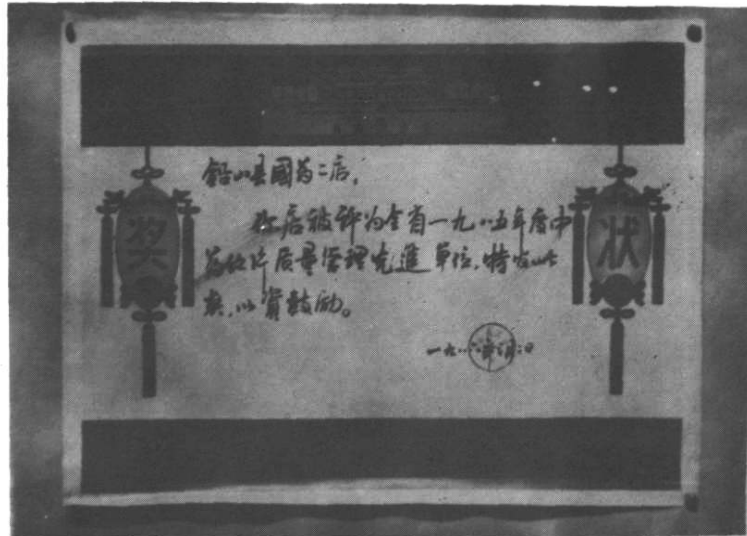 奖
状
铅山县國药二店:
你店被评为全省一九八五年度中
药饮片质量管理先進单位,特发此
奖,以資鼓励。
一九八六年 月 日